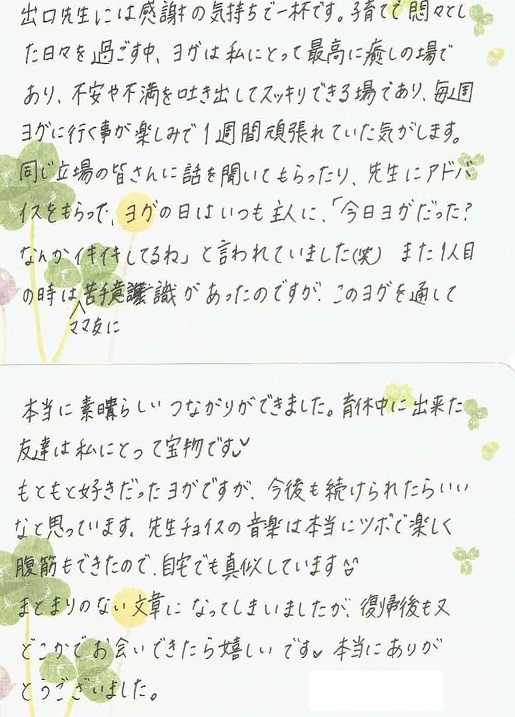 出口先生には感謝の気持ちで一杯です。子育てで悶々とし
た日々を過ごす中、ヨガは私にとって最高に癒しの場で
あり、不安や不満を吐き出してスッキリできる場であり、毎週
ヨガに行く事が楽しみで1週間頑張れていた気がします。
同じ立場の皆さんに話を聞いてもらったり、先生にアドバ
イスをもらって、ヨガの日はいつも主人に、「今日ヨガだった?
なんかイキイキしてるね」と言われていました(笑) また1人目
の時はママ友に苦手意識があったのですが、このヨガを通して
本当に素晴らしいつながりができました。育休中に出来た
友達は私にとって宝物です♥
もともと好きだったヨガですが、今後も続けられたらいい
なと思っています。先生チョイスの音楽は本当にツボで楽しく
腹筋もできたので、自宅でも真似しています
まとまりのない文章になってしまいましたが、復帰後も又
どこかでお会いできたら嬉しいです♥ 本当にありが
とうございました。